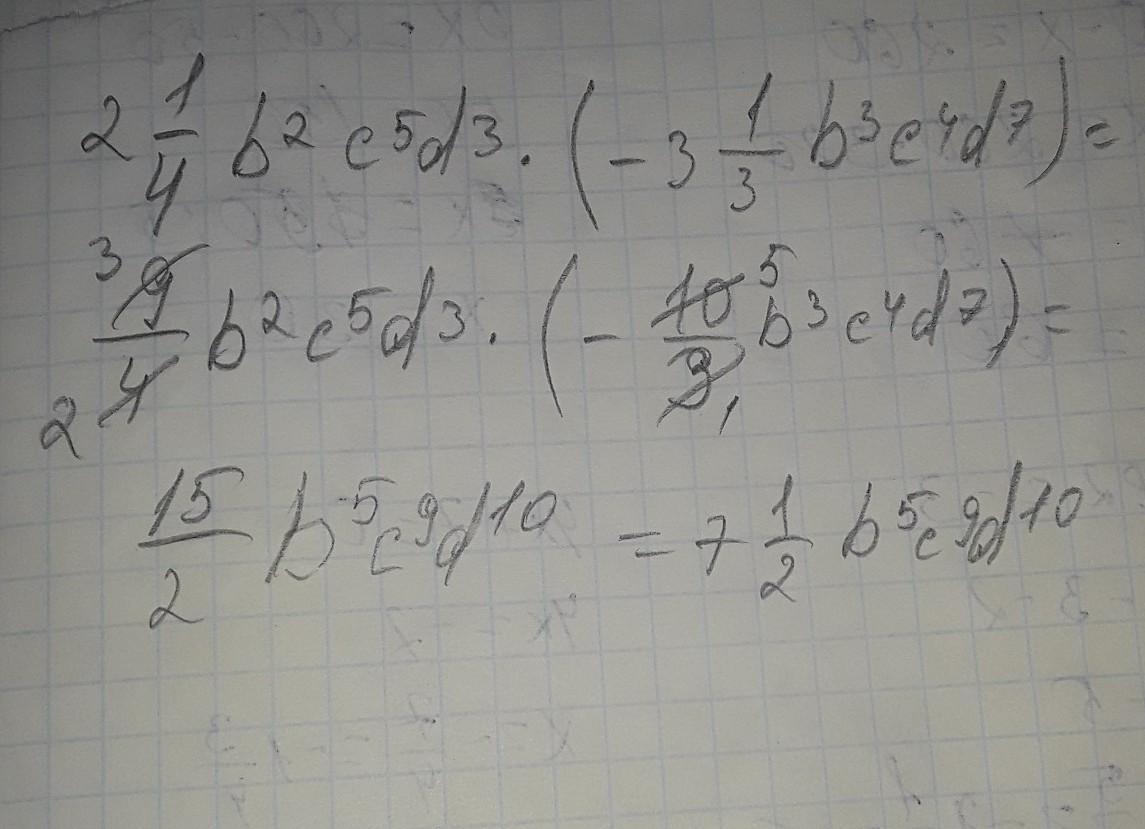 2 1/4 b² c⁵d³ · (-3 1/3 b³c⁴d⁷) =
³9/4₂ b² c⁵d³ · (- 10⁵/3₁ b³ c⁴d⁷) =
15/2 b⁵c⁹d¹⁰ = 7 1/2 b⁵c⁹d¹⁰